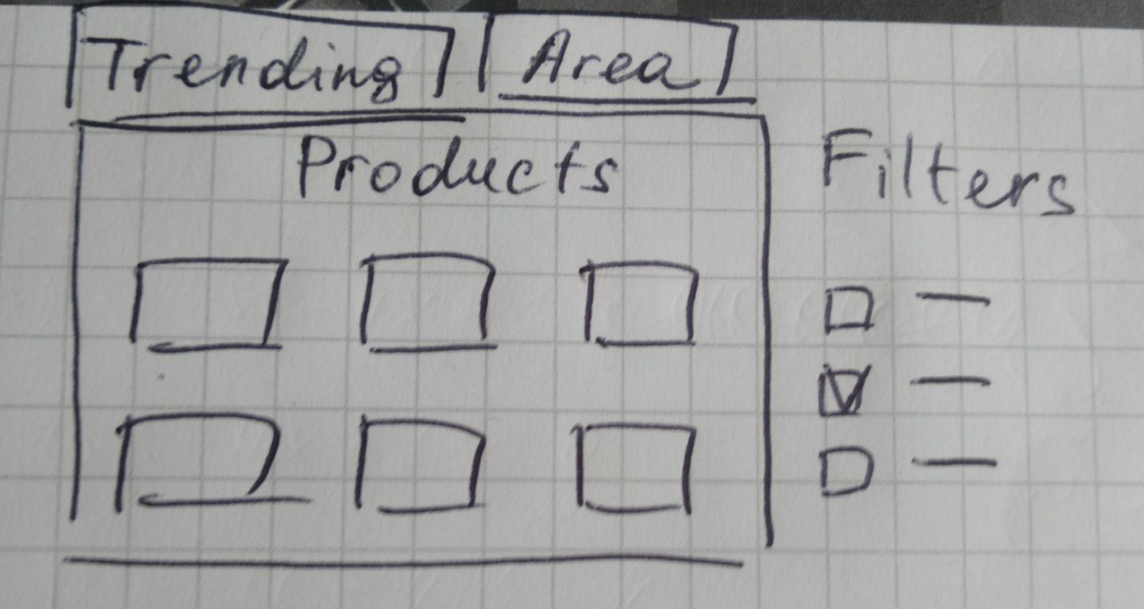 Trending Area
Products
Filters